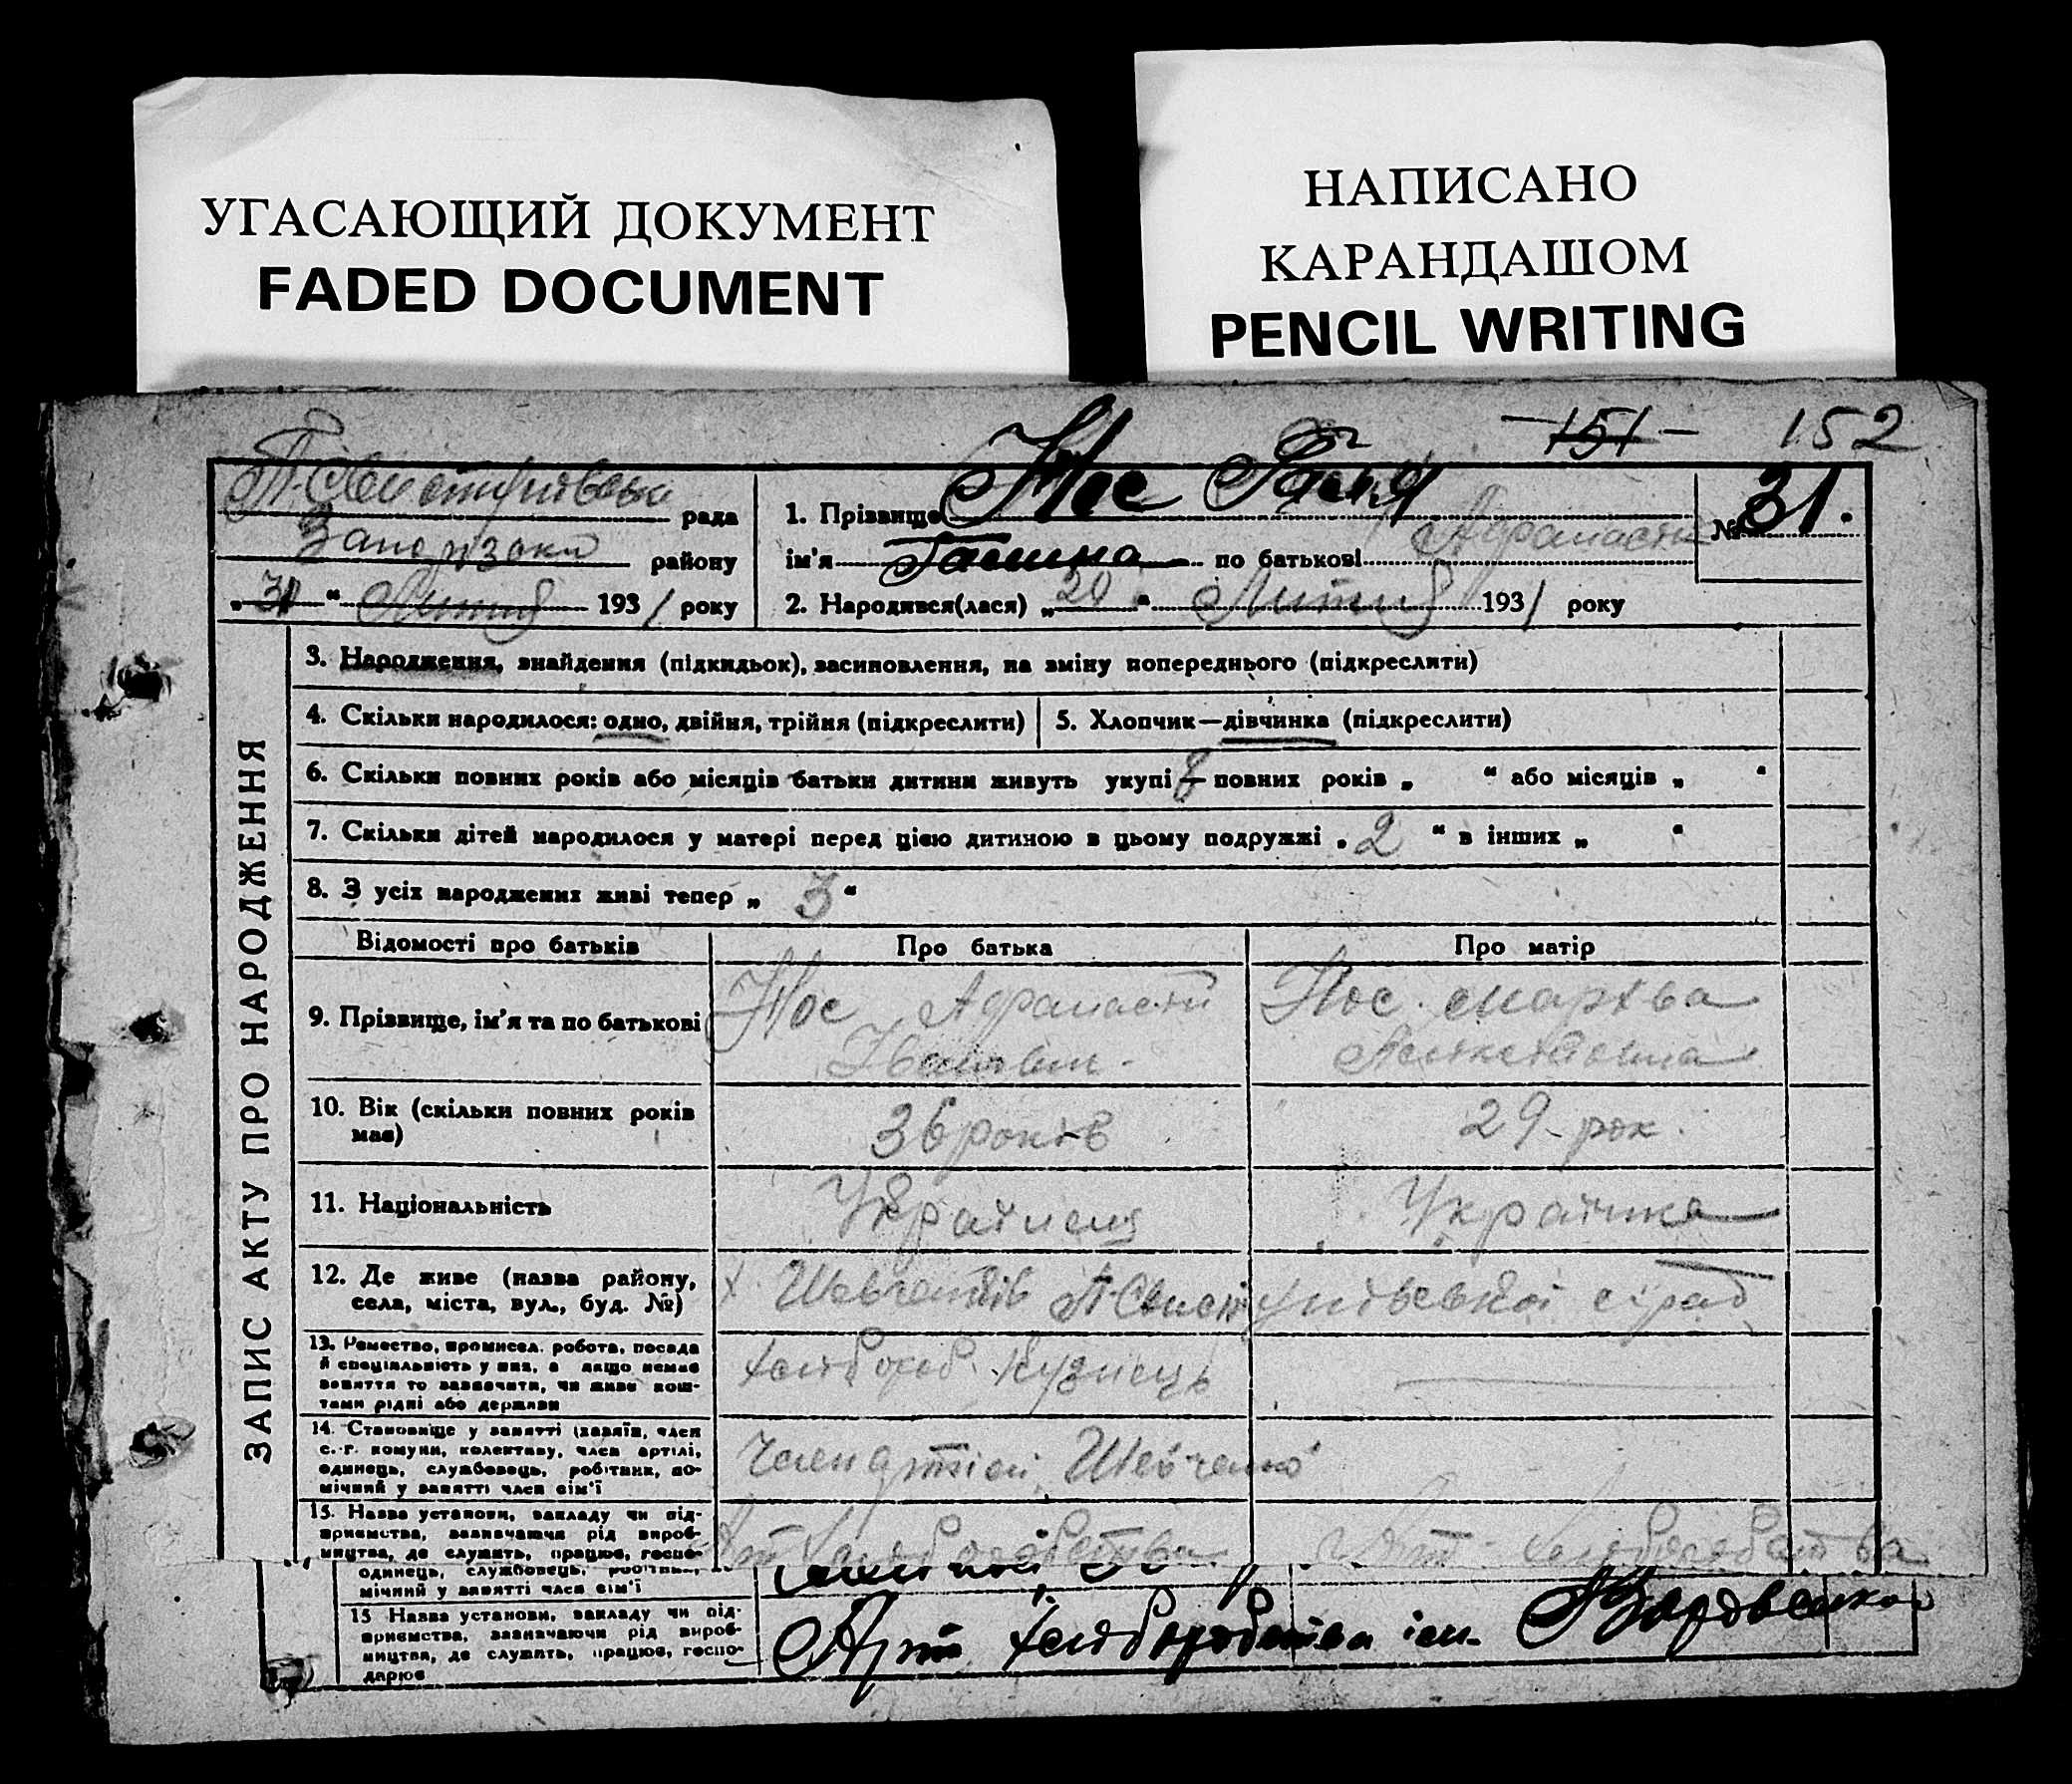 УГАСАЮЩИЙ ДОКУМЕНТ
FADED DOCUMENT
НАПИСАНО
КАРАНДАШОМ
PENCIL WRITING
151
152
рада
району
193 1 року
1. Прізвище Нос
№ 31.
ім'я Галина по батькові
2. Народився(лася) „ “ Лютий 193 1 року
ЗАПИС АКТУ ПРО НАРОДЖЕННЯ
3. Народження, знайдення (підкидьок), засиновлення, на зміну попереднього (підкреслити)
4. Скільки народилося: одно, двійня, трійня (підкреслити)
5. Хлопчик—дівчинка (підкреслити)
6. Скільки повних років або місяців батьки дитини живуть укупі повних років „ “ або місяців „ “
7. Скільки дітей народилося у матері перед цією дитиною в цьому подружжі „ 2 “ в інших „ “
8. З усіх народжених живі тепер „ 3 “
Відомості про батьків
Про батька
Про матір
9. Прізвище, ім'я та по батькові
Нос Афанасій
Іванович
Нос Мархва
10. Вік (скільки повних років
має)
36 років
29 рок.
11. Національність
Українець
Українка
12. Де живе (назва району,
села, міста, вул., буд. №)
х. Шевченків
13. Ремество, промисел, робота, посада
й спеціяльність у них, а якщо немає
заняття то зазначити, чи живе кош-
тами рідні або держави
хлібороб. Кузнець
14. Становище у занятті (хазяїн, член
с.-г. комуни, колективу, член артілі,
одинець, службовець, робітник, по-
мічний у занятті член сім'ї
член артілі Шевченко
15. Назва установи, закладу чи під-
приємства, зазначаючи рід вироб-
ництва, де служить, працює, госпо-
Арт хліборобства
хліборобства
одинець, службовець,
мічний у занятті член сім'ї
15 Назва установи, закладу чи під-
приємства, зазначаючи рід вироб-
ництва, де служить, працює, госпо-
дарює
Арт хліборобства ім.